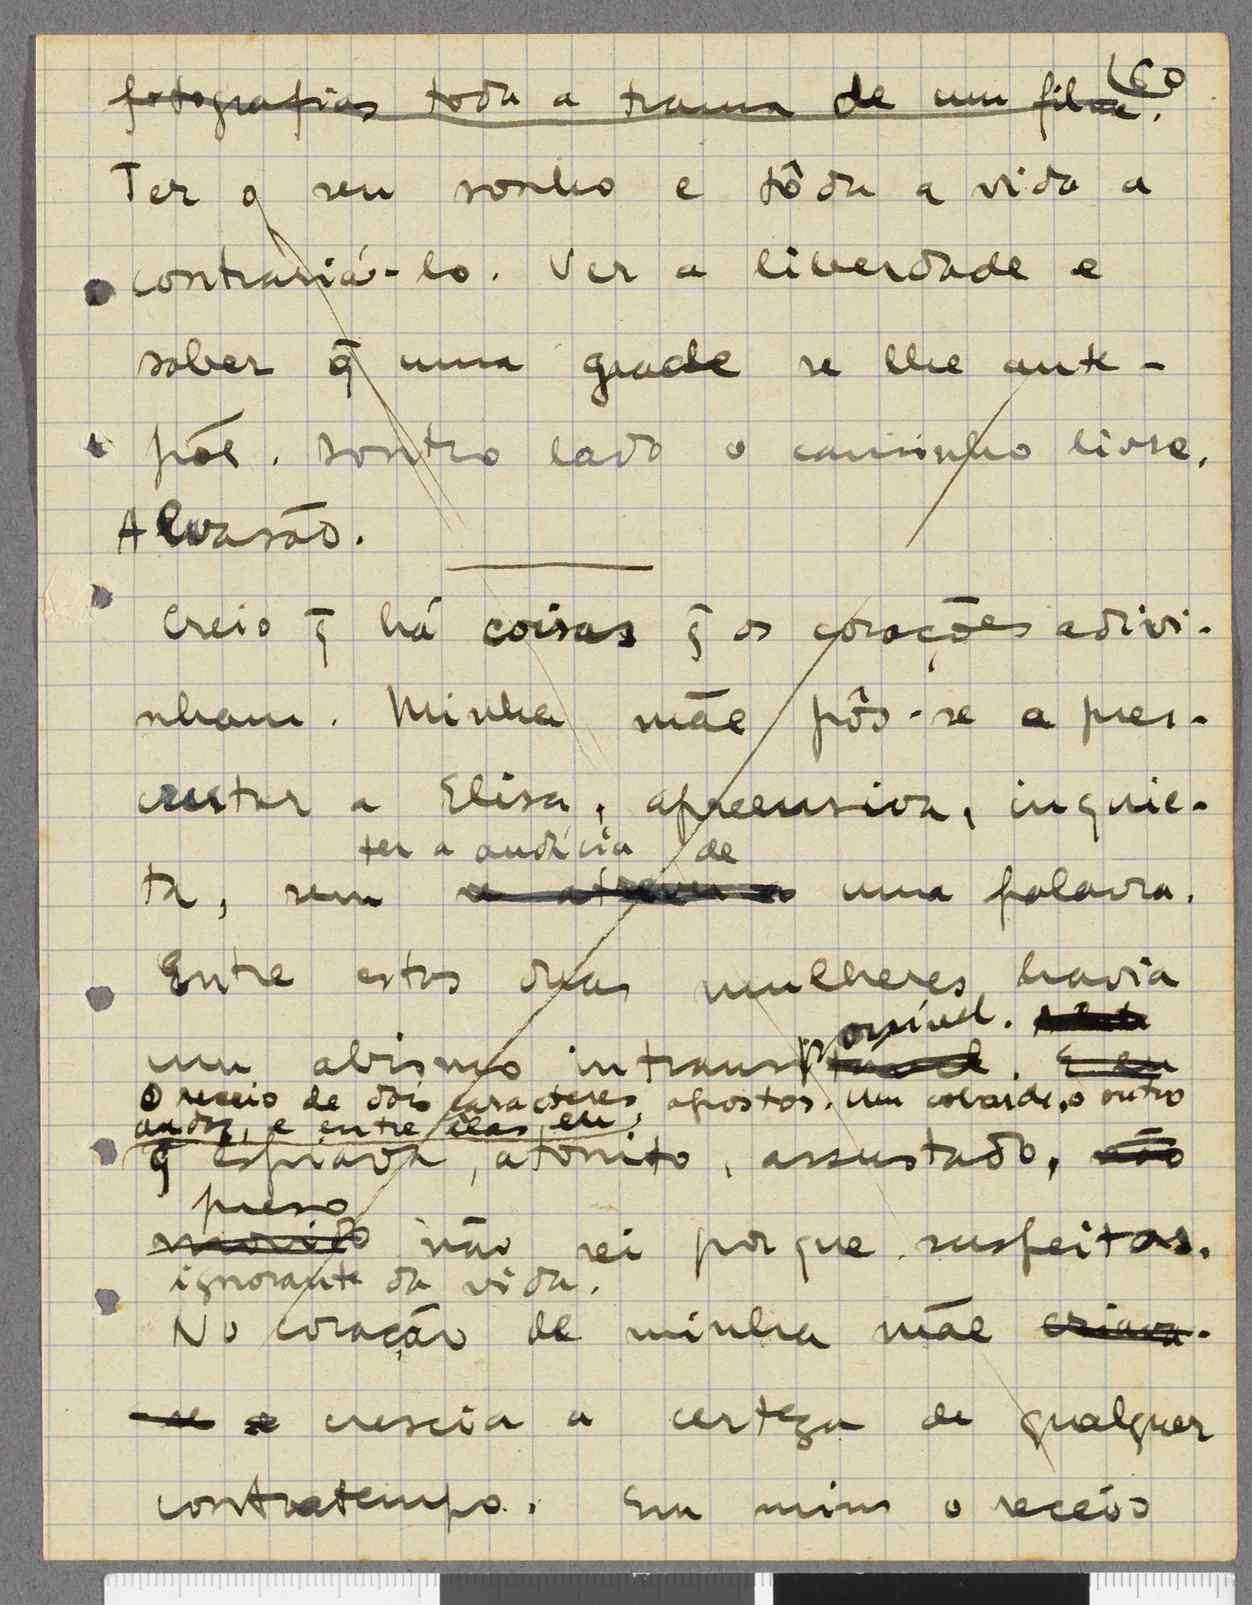 fotografias toda a trama de um filme.
Ter o seu sonho e tôda a vida a
contrariá-lo. Ver a liberdade e
saber q̃ uma grade se lhe ante-
põe. Doutro lado o caminho livre.
A evasão.
Creio q̃ há coisas q̃ os corações adivi-
nham. Minha mãe pôs-se a pers-
crutar a Elisa, apreensiva, inquie-
ter a audácia de
ta, sem se atrever a uma palavra.
Entre estas duas mulheres havia
ponível.
um abismo intrans . E eu
O receio de dois caracteres opostos. Um covarde, o outro
audaz, e entre elas eu,
q̃ espiava, atónito, assustado, não
preso
movido não sei porque suspeitas.
ignorante da vida.
No coração de minha mãe criava-
se e crescia a certeza de qualquer
contratempo. Em mim o receio